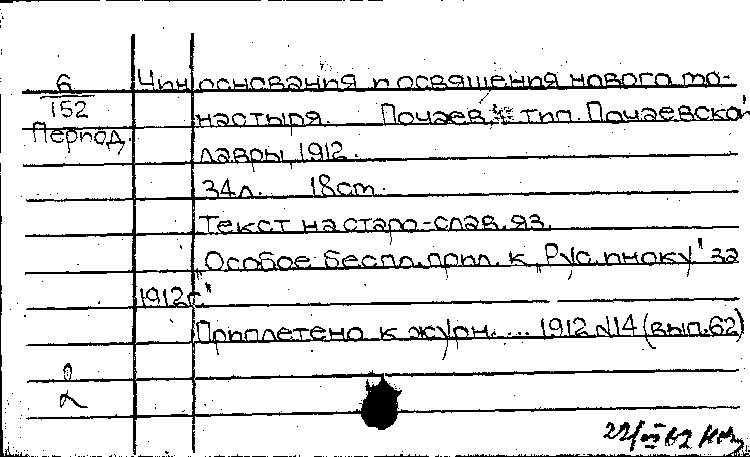 6
152
Период.
Чин основания и освящения нового мо-
настыря. Почаев, тип. Почаевской
лавры, 1912.
34л. 18cm.
Текст на старо-слав. яз.
"Особое беспл. прил. к "Рус. иноку" за
1912г."
Приплетено к журн. ... 1912 №14 (вып. 62)